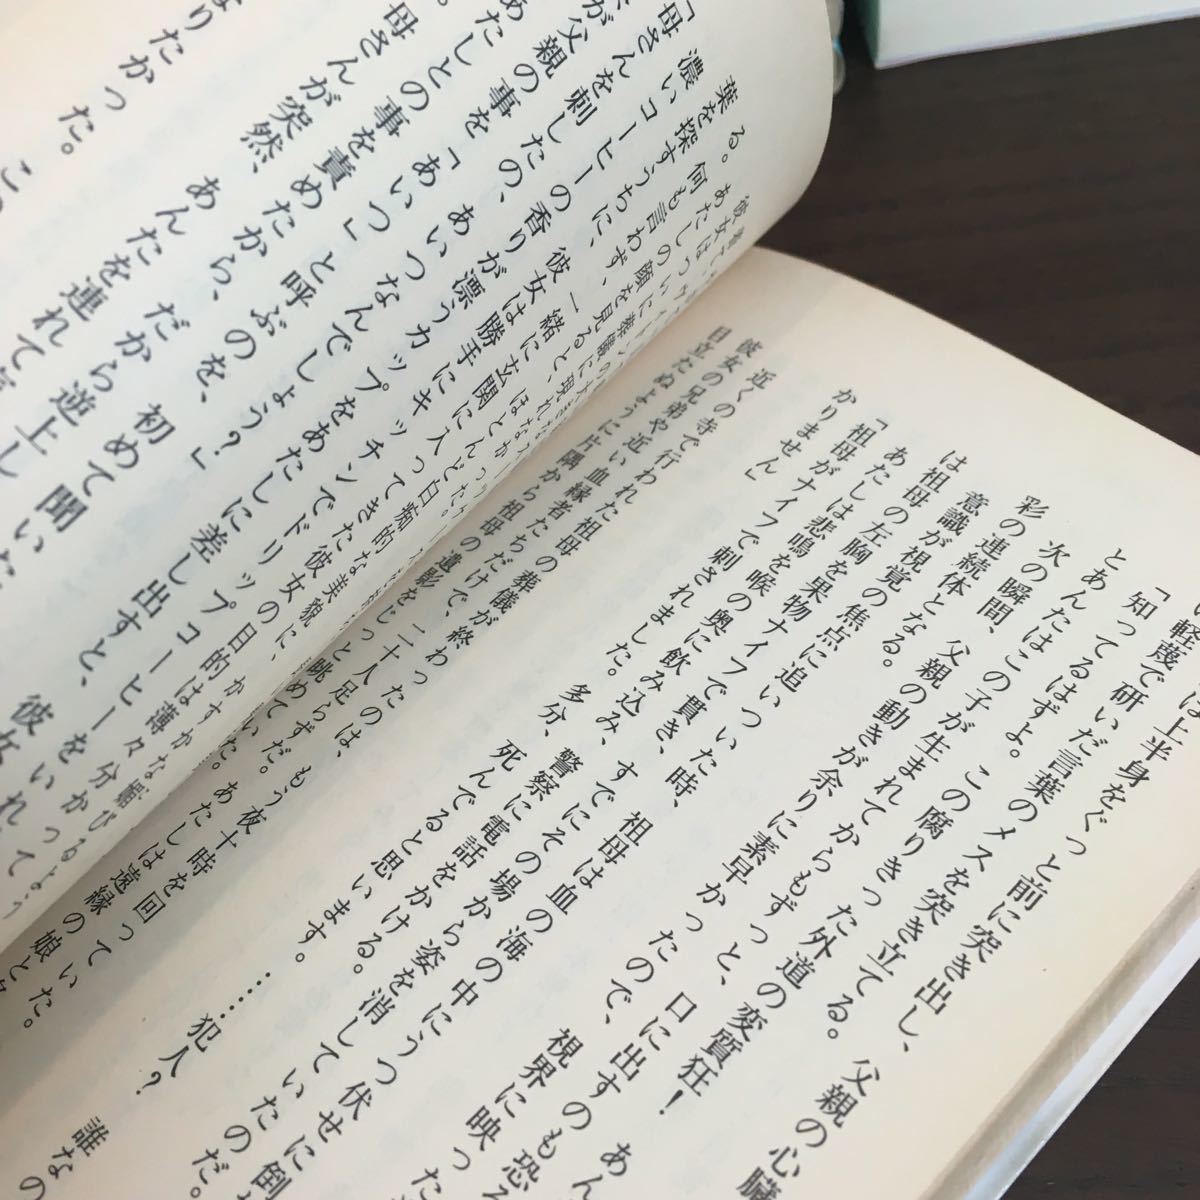 は上半身をぐっと前に突き出し、父親の心臓
い軽蔑で研いだ言葉のメスを突き立てる。
「知ってるはずよ。この腐りきった外道の変質狂！　あん
とあんたはこの子が生まれてからもずっと、口に出すのも恐ろ
次の瞬間、父親の動きが余りに素早かったので、視界に映った
彩の連続体となる。
意識が視覚の焦点に追いついた時、祖母は血の海の中にうつ伏せに倒
は祖母の左胸を果物ナイフで貫き、すでにその場から姿を消していたのだ。
あたしは悲鳴を喉の奥に飲み込み、警察に電話をかける。
「祖母がナイフで刺されました。多分、死んでると思います。……犯人？　誰なの
かりません」
近くの寺で行われた祖母の葬儀が終わったのは、もう夜十時を回っていた。
彼女の兄弟や近い血縁者たちだけで、二十人足らずだ。あたしは遠縁の娘と
目立たぬように片隅から祖母の遺影をじっと眺めていた。
彼女はついに葬儀に
る。あたしの顔を見ると、ほとんど白痴的な美貌に、かすかな媚びるよう
何も言わず、一緒に玄関に入ってきた彼女の目的は薄々分かっ
葉を探すうちに、彼女は勝手にキッチンでドリップコーヒーをいれて
濃いコーヒーの香りが漂うカップをあたしに差し出すと、彼女
「母さんを刺したの、あいつなんでしょう？」
が父親の事を「あいつ」と呼ぶのを、初めて聞いた
あたしとの事を責めたから、だから逆上し
母さんが突然、あんたを連れて
なりたかった。こ